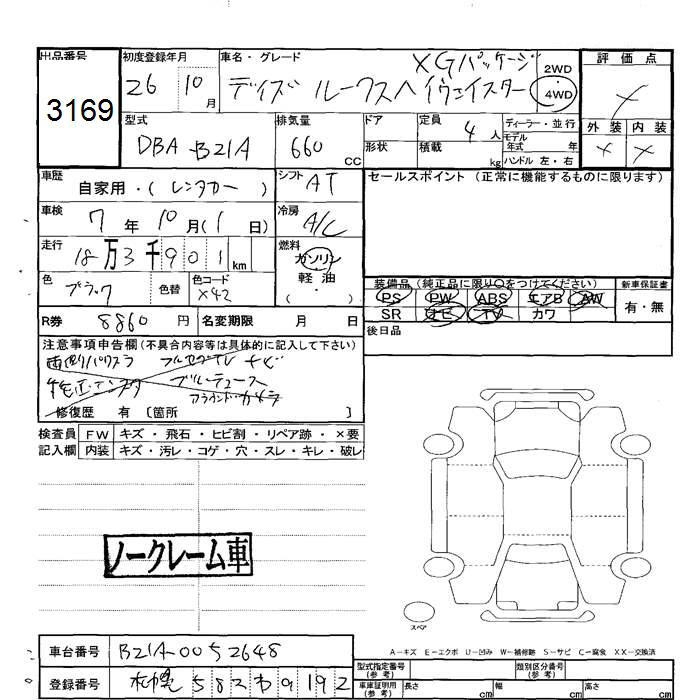 出品番号 初度登録年月 車名・グレード 評価点
3169 26 10月 XGパッケージ
デイズ ルークス ハイウェイスター 2WD 4WD ×
型式 排気量 ドア 定員 4人 ディーラー・並行 外装 内装
DBA-B21A 660cc 形状 積載 kg モデル年式 年 × ×
ハンドル 左・右
車歴 自家用・(レンタカー) シフト AT セールスポイント (正常に機能するものに限ります)
車検 7年10月(1日) 冷房 A/C
走行 18万3千901km 燃料 ガソリン
軽油
色 ブラック 色替 色コード X42 ( ・・ ) 装備品(純正品に限り○をつけてください) 新車保証書
PS PW ABS エアB AW 有・無
R券 8860円 名変期限 月 日 SR ナビ TV カワ
注意事項申告欄(不具合内容等は具体的に記入して下さい) 後日品
両側パワスラ フルセグTV ナビ
ブルーテュース
アラウンドカメラ
修復歴 有 〔箇所 〕
検査員 FW キズ・飛石・ヒビ割・リペア跡・×要
記入欄 内装 キズ・汚レ・コゲ・穴・スレ・キレ・破レ
ノークレーム車
スペア
A-キズ E-エクボ U-凹み W-補修跡 S-サビ C-腐食 XX-交換済
車台番号 B21A-0052648 型式指定番号(参考) 類別区分番号(参考)
登録番号 札幌 582 わ 9192 車庫証明用(参考) 長さ cm 幅 cm 高さ cm